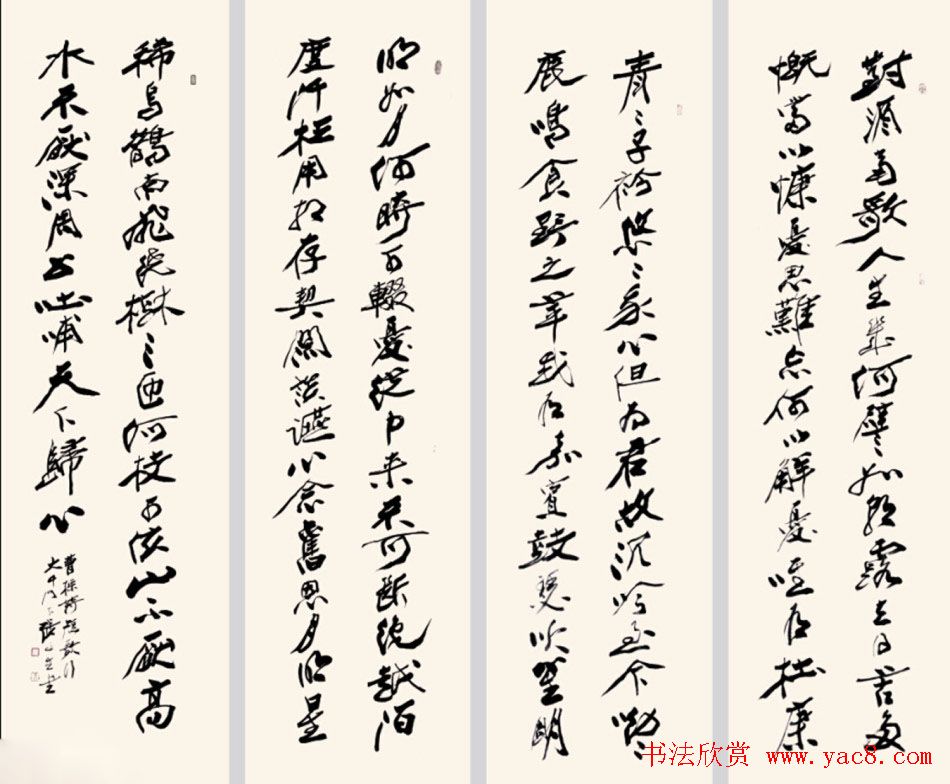 對酒當歌人生幾何譬如朝露去日苦多
慨當以慷憂思難忘何以解憂唯有杜康
青〻子衿悠〻我心但為君故沉吟至今呦〻
鹿鳴食野之苹我有嘉賓鼓瑟吹笙明
明如月何時可輟憂從中來不可斷絕越陌
度阡枉用相存契闊談讌心念舊恩月明星
稀烏鵲南飛繞樹三匝何枝可依山不厭高
水不厭深周公吐哺天下歸心
曹操詩短歌行
书法欣赏 www.yac8.com